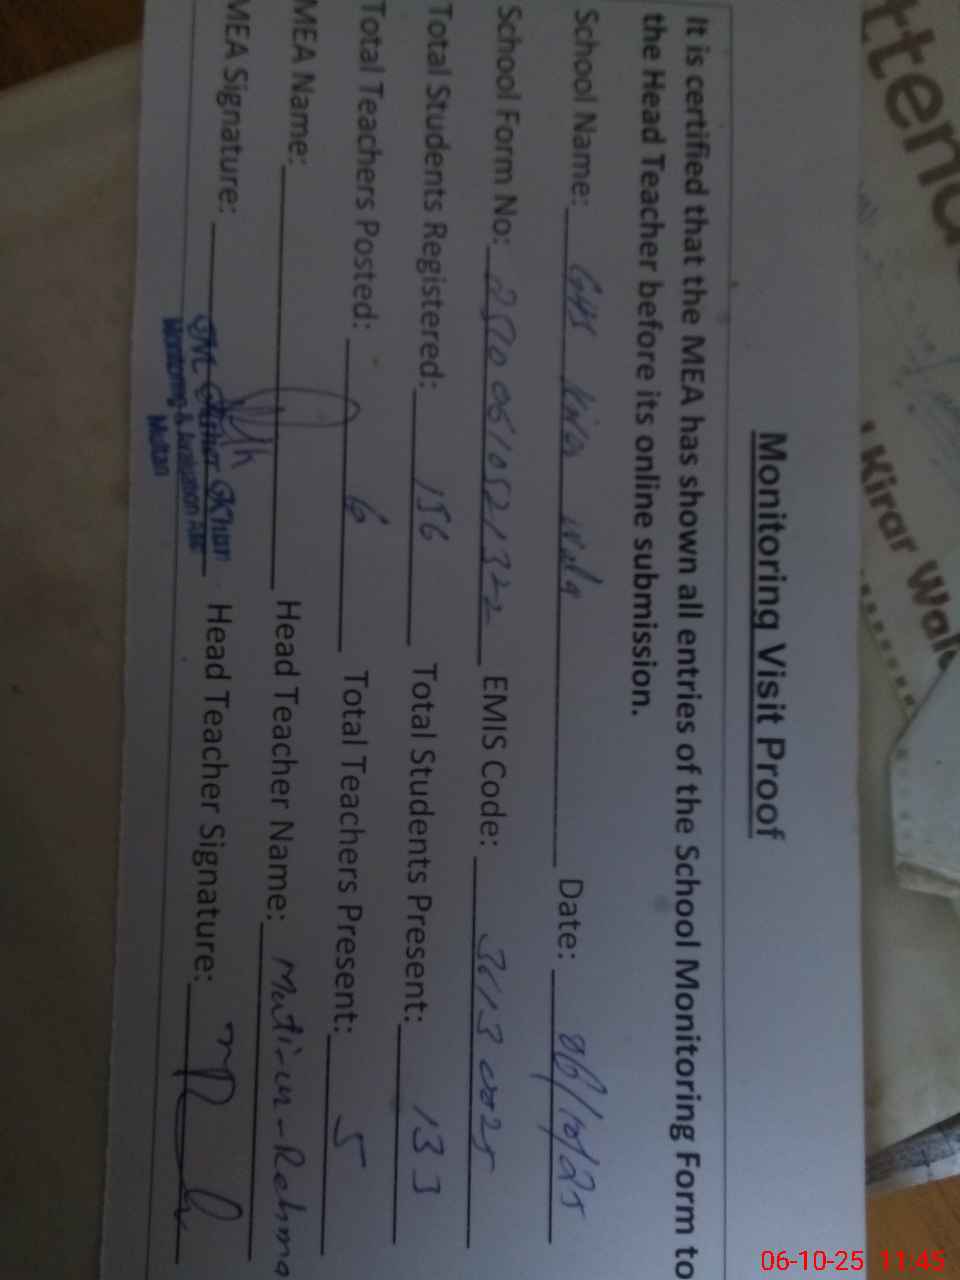 Monitoring Visit Proof
It is certified that the MEA has shown all entries of the School Monitoring Form to
the Head Teacher before its online submission.
School Name: GHS Kirar Wala Date: 06/10/25
School Form No: EMIS Code:
Total Students Registered: 156 Total Students Present: 133
Total Teachers Posted: 6 Total Teachers Present: 5
MEA Name: Head Teacher Name: Muti-ur-Rehma
MEA Signature: Head Teacher Signature:
Monitoring & Evaluation
Multan
Kirar Wala
06-10-25 11:45